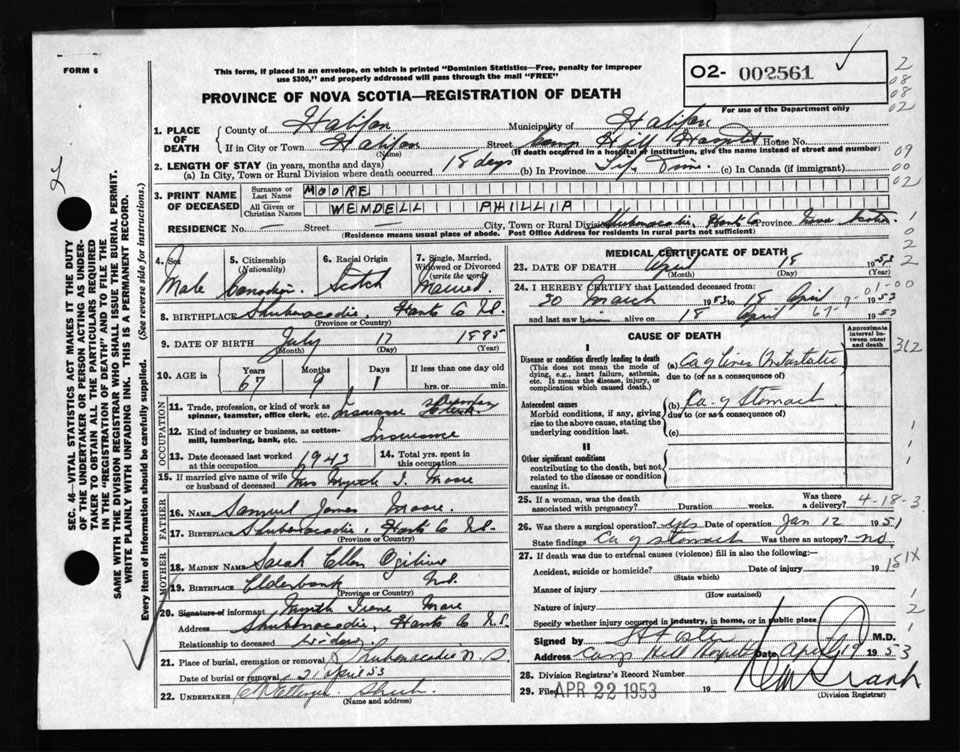 FORM 6
This form, if placed in an envelope, on which is printed "Dominion Statistics—Free, penalty for improper
use $300," and properly addressed will pass through the mail "FREE"
02- 002561
For use of the Department only
PROVINCE OF NOVA SCOTIA—REGISTRATION OF DEATH
1. PLACE OF DEATH
County of Halifax Municipality of Halifax
If in City or Town Halifax Street Camp Hill Hospital House No.
(Name) (If death occurred in a hospital or institution, give the name instead of street and number)
2. LENGTH OF STAY (in years, months and days)
(a) In City, Town or Rural Division where death occurred 18 days (b) In Province Life Time (c) In Canada (if immigrant)
3. PRINT NAME OF DECEASED
Surname or Last Name MOORE
All Given or Christian Names WENDELL PHILLIP
RESIDENCE No. — Street — City, Town or Rural Division Shubenacadie, Hants Co Province Nova Scotia
(Residence means usual place of abode. Post Office Address for residents in rural parts not sufficient)
4. Sex Male
5. Citizenship (Nationality) Canadian
6. Racial Origin Scotch
7. Single, Married, Widowed or Divorced (write the word) Married
8. BIRTHPLACE Shubenacadie, Hants Co N.S.
(Province or Country)
9. DATE OF BIRTH July 17 1885
(Month) (Day) (Year)
10. AGE in Years 67 Months 9 Days 1 If less than one day old hrs. or min.
OCCUPATION
11. Trade, profession or kind of work as spinner, teamster, office clerk, etc. Insurance
12. Kind of industry or business, as cotton-mill, lumbering, bank, etc. Insurance
13. Date deceased last worked at this occupation 1943
14. Total yrs. spent in this occupation
15. If married give name of wife or husband of deceased Mrs Myrtle I. Moore
FATHER
16. NAME Samuel James Moore
17. BIRTHPLACE Shubenacadie, Hants Co N.S.
(Province or Country)
MOTHER
18. MAIDEN NAME Sarah Ellen Ogilvie
19. BIRTHPLACE Elderbank N.S.
(Province or Country)
20. Signature of informant Myrtle Irene Moore
Address Shubenacadie, Hants Co N.S.
Relationship to deceased widow
21. Place of burial, cremation or removal Shubenacadie N.S
Date of burial or removal 21 April 53
22. UNDERTAKER
(Name and address)
MEDICAL CERTIFICATE OF DEATH
23. DATE OF DEATH April 18 1953
(Month) (Day) (Year)
24. I HEREBY CERTIFY that I attended deceased from:
30 March 1953 to 18 April 1953
and last saw him alive on 18 April 1953
CAUSE OF DEATH
Approximate interval between onset and death
I
Disease or condition directly leading to death (This does not mean the mode of dying, e.g., heart failure, asthenia, etc. It means the disease, injury, or complication which caused death.)
(a) Ca of Liver Metastatic
due to (or as a consequence of)
Antecedent causes
Morbid conditions, if any, giving rise to the above cause, stating the underlying condition last.
(b) Ca of Stomach
due to (or as a consequence of)
(c)
II
Other significant conditions
contributing to the death, but not related to the disease or condition causing it.
25. If a woman, was the death associated with pregnancy? Duration weeks. Was there a delivery?
4-18-3
26. Was there a surgical operation? yes Date of operation Jan 12 1951
State findings Ca of stomach Was there an autopsy? no
27. If death was due to external causes (violence) fill in also the following:—
Accident, suicide or homicide? Date of injury 19
(State which)
151X
Manner of injury
(How sustained)
Nature of injury
Specify whether injury occurred in industry, in home, or in public place
Signed by M.D.
Address Camp Hill Hospital Date April 19 1953
28. Division Registrar's Record Number
29. Filed APR 22 1953 19
(Division Registrar)
SEC. 46—VITAL STATISTICS ACT MAKES IT THE DUTY
OF THE UNDERTAKER OR PERSON ACTING AS UNDER-
TAKER TO OBTAIN ALL THE PARTICULARS REQUIRED
IN THE "REGISTRATION OF DEATH" AND TO FILE THE
SAME WITH THE DIVISION REGISTRAR WHO SHALL ISSUE THE BURIAL PERMIT.
WRITE PLAINLY WITH UNFADING INK. THIS IS A PERMANENT RECORD.
Every item of information should be carefully supplied. (See reverse side for instructions.)